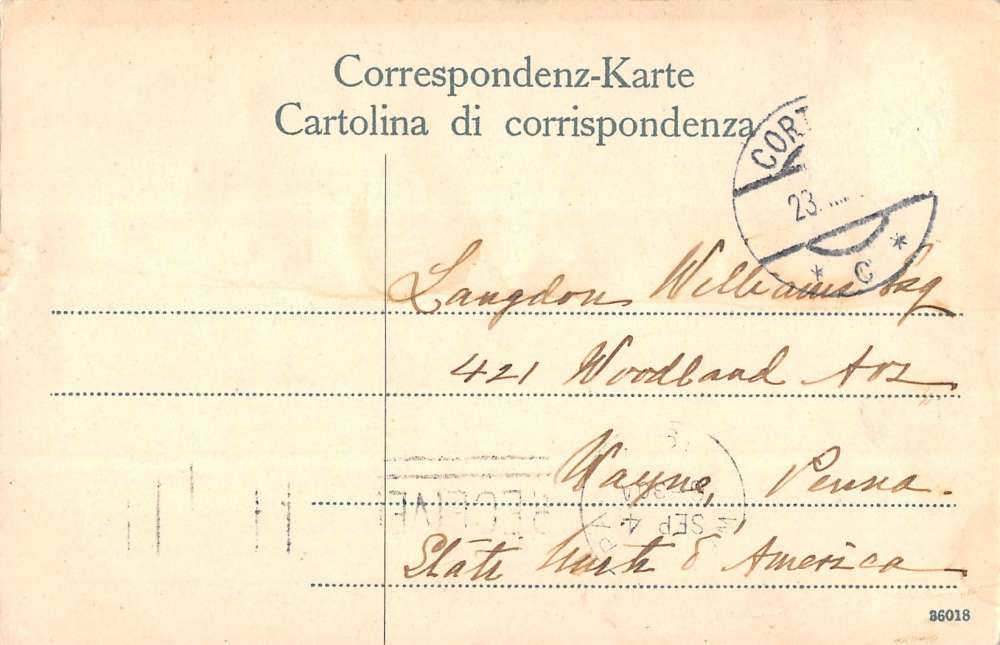 Correspondenz-Karte
Cartolina di corrispondenza
CORT
23
* C *
Langdon Williams Esq
421 Woodland Ave
Wayne, Penna.
State Unite d' America
RECEIVE
SEP 4
36018